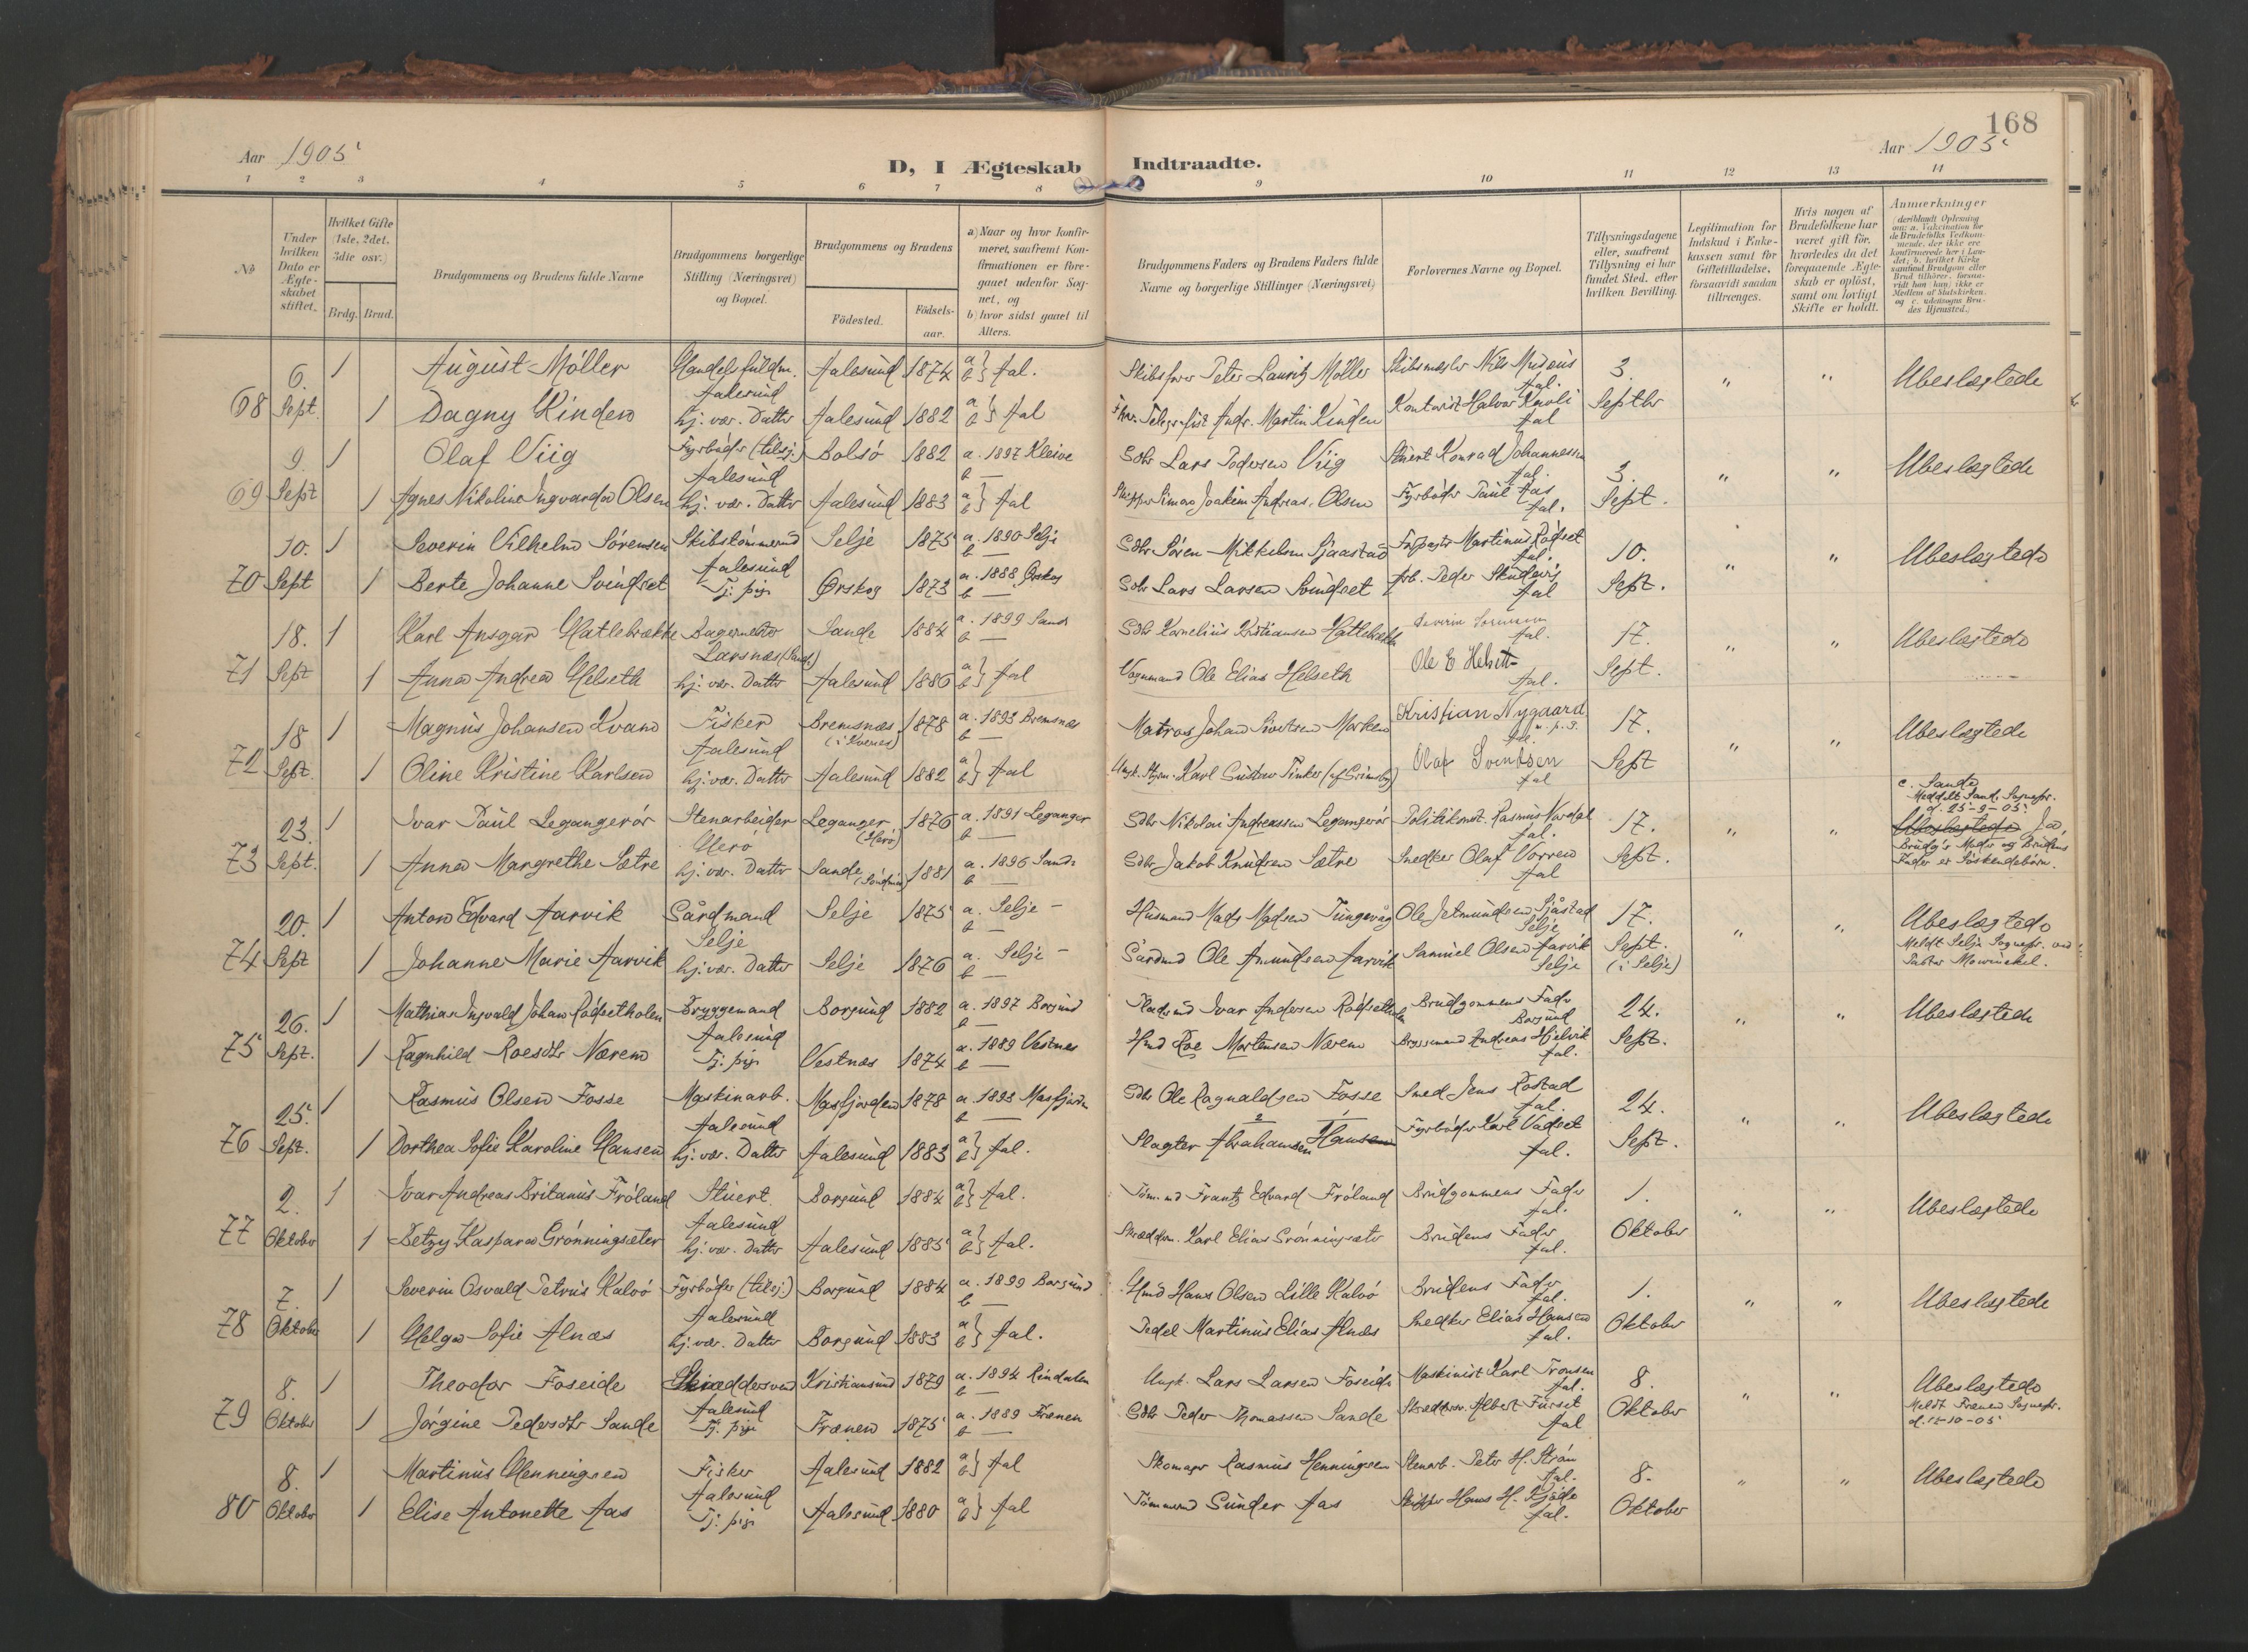 168
Aar 1905
Aar 1905
D, I Ægteskab Indtraadte.
1 2 3 4 5 6 7 8 9 10 11 12 13 14
No
Under hvilken Dato er Ægteskabet stiftet.
Hvilket Gifte (1ste, 2det, 3die osv.)
Brdg. Brud.
Brudgommens og Brudens fulde Navne
Brudgommens borgerlige Stilling (Næringsvei) og Bopæl.
Brudgommens og Brudens
Födested.
Födselsaar.
a) Naar og hvor konfirmeret, saafremt Konfirmationen er foregaaet udenfor Sognet, og
b) hvor sidst gaaet til Alters.
Brudgommens Faders og Brudens Faders fulde Navne og borgerlige Stillinger (Næringsvei)
Forlovernes Navne og Bopæl.
Tillysningsdagene eller, saafremt Tillysning ei har fundet Sted, efter hvilken Bevilling.
Legitimation for Indskud i Enkekassen samt for Giftetilladelse, forsaavidt saadan tiltrænges.
Hvis nogen af Brudefolkene har været gift för, hvorledes da det foregaaende Ægteskab er oplöst, samt om lovligt Skifte er holdt.
Anmærkninger
6. 1 August Möller Handelsfuldm. Aalesund 1874 a b } Aal. Skibsförer Peter Lauritz Möller Skibsmægler Nils Aal. 3. " " Ubeslægtede
Aalesund
68 Sept. 1 Dagny Kinden hj. vær. Datter Aalesund 1882 a b } Aal Telegrafist Andr. Martin Kinden Kontorist Halvor Kavli Aal Septbr
9. 1 Olaf Viig Fyrböder (tilsj.) Bolsö 1882 a. 1897 Kleive b — Sdbr Lars Pedersen Viig Stuert Konrad Johannessen Aal. 3. " " Ubeslægtede
Aalesund
69 Sept 1 Agnes Nikoline Ingvarda Olsen hj. vær. Datter Aalesund 1883 a b } Aal Skipper Simon Joakim Andreas Olsen Fyrböder Paul Aas Aal. Sept.
10. 1 Severin Vilhelm Sörensen Skibstömmermd Selje 1875 a. 1890 Selje b — Sdbr Sören Mikkelsen Sjaastad Martinus Rödset Aal. 10. " " Ubeslægtede
Aalesund
70 Sept 1 Berte Johanne Svindset Tj. pige Ørskog 1873 a. 1888 Ørskog b — Sdbr Lars Larsen Svindset Arb. Peder Aal Sept.
18. 1 Karl Ansgar Hatlebrække Bagermester Sande 1884 a. 1899 Sande b — Sdbr Kornelius Kristiansen Hatlebrække Severin Sörensen Aal. 17. " " Ubeslægtede
Larsnæs (Sande)
71 Sept 1 Anna Andrea Helseth hj. vær. Datter Aalesund 1886 a b } Aal Vognmand Ole Elias Helseth Ole E Helseth Aal. Sept.
18 1 Magnus Johansen Kvam Fisker Bremsnæs (i Kvernes) 1878 a. 1893 Bremsnæs b — Matros Johan Morken Kristian Nygaard m. p. P. Aal. 17. " " Ubeslægtede
Aalesund
72 Sept. 1 Oline Kristine Karlsen hj. vær. Datter Aalesund 1882 a b } Aal Ungk. Styrm. Karl Gustav Tinker (af Grimsby) Olaf Svendsen Aal Sept
23. 1 Ivar Paul Legangerör Stenarbeider Leganger (Herö) 1876 a. 1891 Leganger b — Sdbr Nikolai Andreassen Legangerör Politikonst. Rasmus Nordal Aal. 17. " " c. Sande
Meddelt Sande Sognepr. d. 25-9-05
Herö
73 Sept. 1 Anna Margrethe Sætre hj. vær. Datter Sande (Söndmör) 1881 a. 1896 Sande b — Sdbr Jakob Knudsen Sætre Snedker Olaf Vorren Aal Sept. Ubeslægtede Ja, Brudg's Moder og Brudens Fader er Söskendebörn.
20. 1 Anton Edvard Aarvik Gårdmand Selje 1875 a. Selje – b — Husmand Mads Madsen Tungevåg Ole Jetmundsen Sjåstad Selje 17. " " Ubeslægtede
Selje
74 Sept 1 Johanne Marie Aarvik hj. vær. Datter Selje 1876 a. Selje – b — Gårdmd Ole Amundsen Aarvik Samuel Olsen Aarvik Selje Sept. (i Selje) Meldt Selje Sognepr. ved Pastor Mowinckel.
26. 1 Mathias Ingvald Johan Rödsetholen Bryggemand Borgund 1882 a. 1897 Borgund b — Pladsmd Ivar Andersen Rödsetholen Brudgommens Fader Borgund 24. " " Ubeslægtede
Aalesund
75 Sept. 1 Ragnhild Roesdtr Nærem Tj. pige Vestnæs 1874 a. 1889 Vestnes b — Hmd Roe Mortensen Nærem Bryggemand Andreas Hjelvik Aal. Sept.
25. 1 Rasmus Olsen Fosse Maskinarb. Masfjorden 1878 a. 1893 Masfjorden b — Sdbr Ole Ragnaldsen Fosse Smed Jens Rostad Aal. 24. " " Ubeslægtede
Aalesund
76 Sept. 1 Dorthea Sofie Karoline Hansen hj. vær. Datter Aalesund 1883 a b } Aal. Slagter Abrahamsen Hansen Fyrböder Karl Vadset Aal. Sept.
2. 1 Ivar Andreas Britanus Fröland Stuert Borgund 1884 a b } Aal. Töm.md Frantz Edvard Fröland Brudgommens Fader Aal. 1. " " Ubeslægtede
Aalesund
77 Oktober 1 Betzy Kaspara Grönningsæter hj. vær. Datter Aalesund 1885 a b } Aal. Skræddm. Karl Elias Grönningsæter Brudens Fader Aal. Oktober
7. 1 Severin Osvald Petrus Kalvö Fyrböder (tilsj.) Borgund 1884 a. 1899 Borgund b — Hmd Hans Olsen Lille Kalvö Brudens Fader Aal. 1. " " Ubeslægtede
Aalesund
78 Oktober 1 Helga Sofie Alnæs hj. vær. Datter Borgund 1883 a b } Aal. Pedel Martinus Elias Alnæs Snedker Elias Hansen Aal. Oktober
8. 1 Theodor Foseide Skræddersvend Kristiansund 1879 a. 1894 Rindalen b — Ungk. Lars Larsen Foseide Maskinist Karl Tronsen Aal. 8. " " Ubeslægtede
Aalesund
79 Oktober 1 Jörgine Pedersdtr Sande Tj. pige Frænen 1875 a. 1889 Frænen b — Sdbr Peder Thomassen Sande Skræddersv. Albert Furset Aal Oktober Meldt Frænen Sognepr. d. 12-10-05
8. 1 Martinus Henningsen Fisker Aalesund 1882 a b } Aal Skomager Rasmus Henningsen Stenarb. Peter H. Ström Aal. 8. " " Ubeslægtede
Aalesund
80 Oktober 1 Elise Antonette Aas Tj. pige Aalesund 1880 a b } Aal Tömmermd Gunder Aas Skipper Hans H. Aal. Oktober